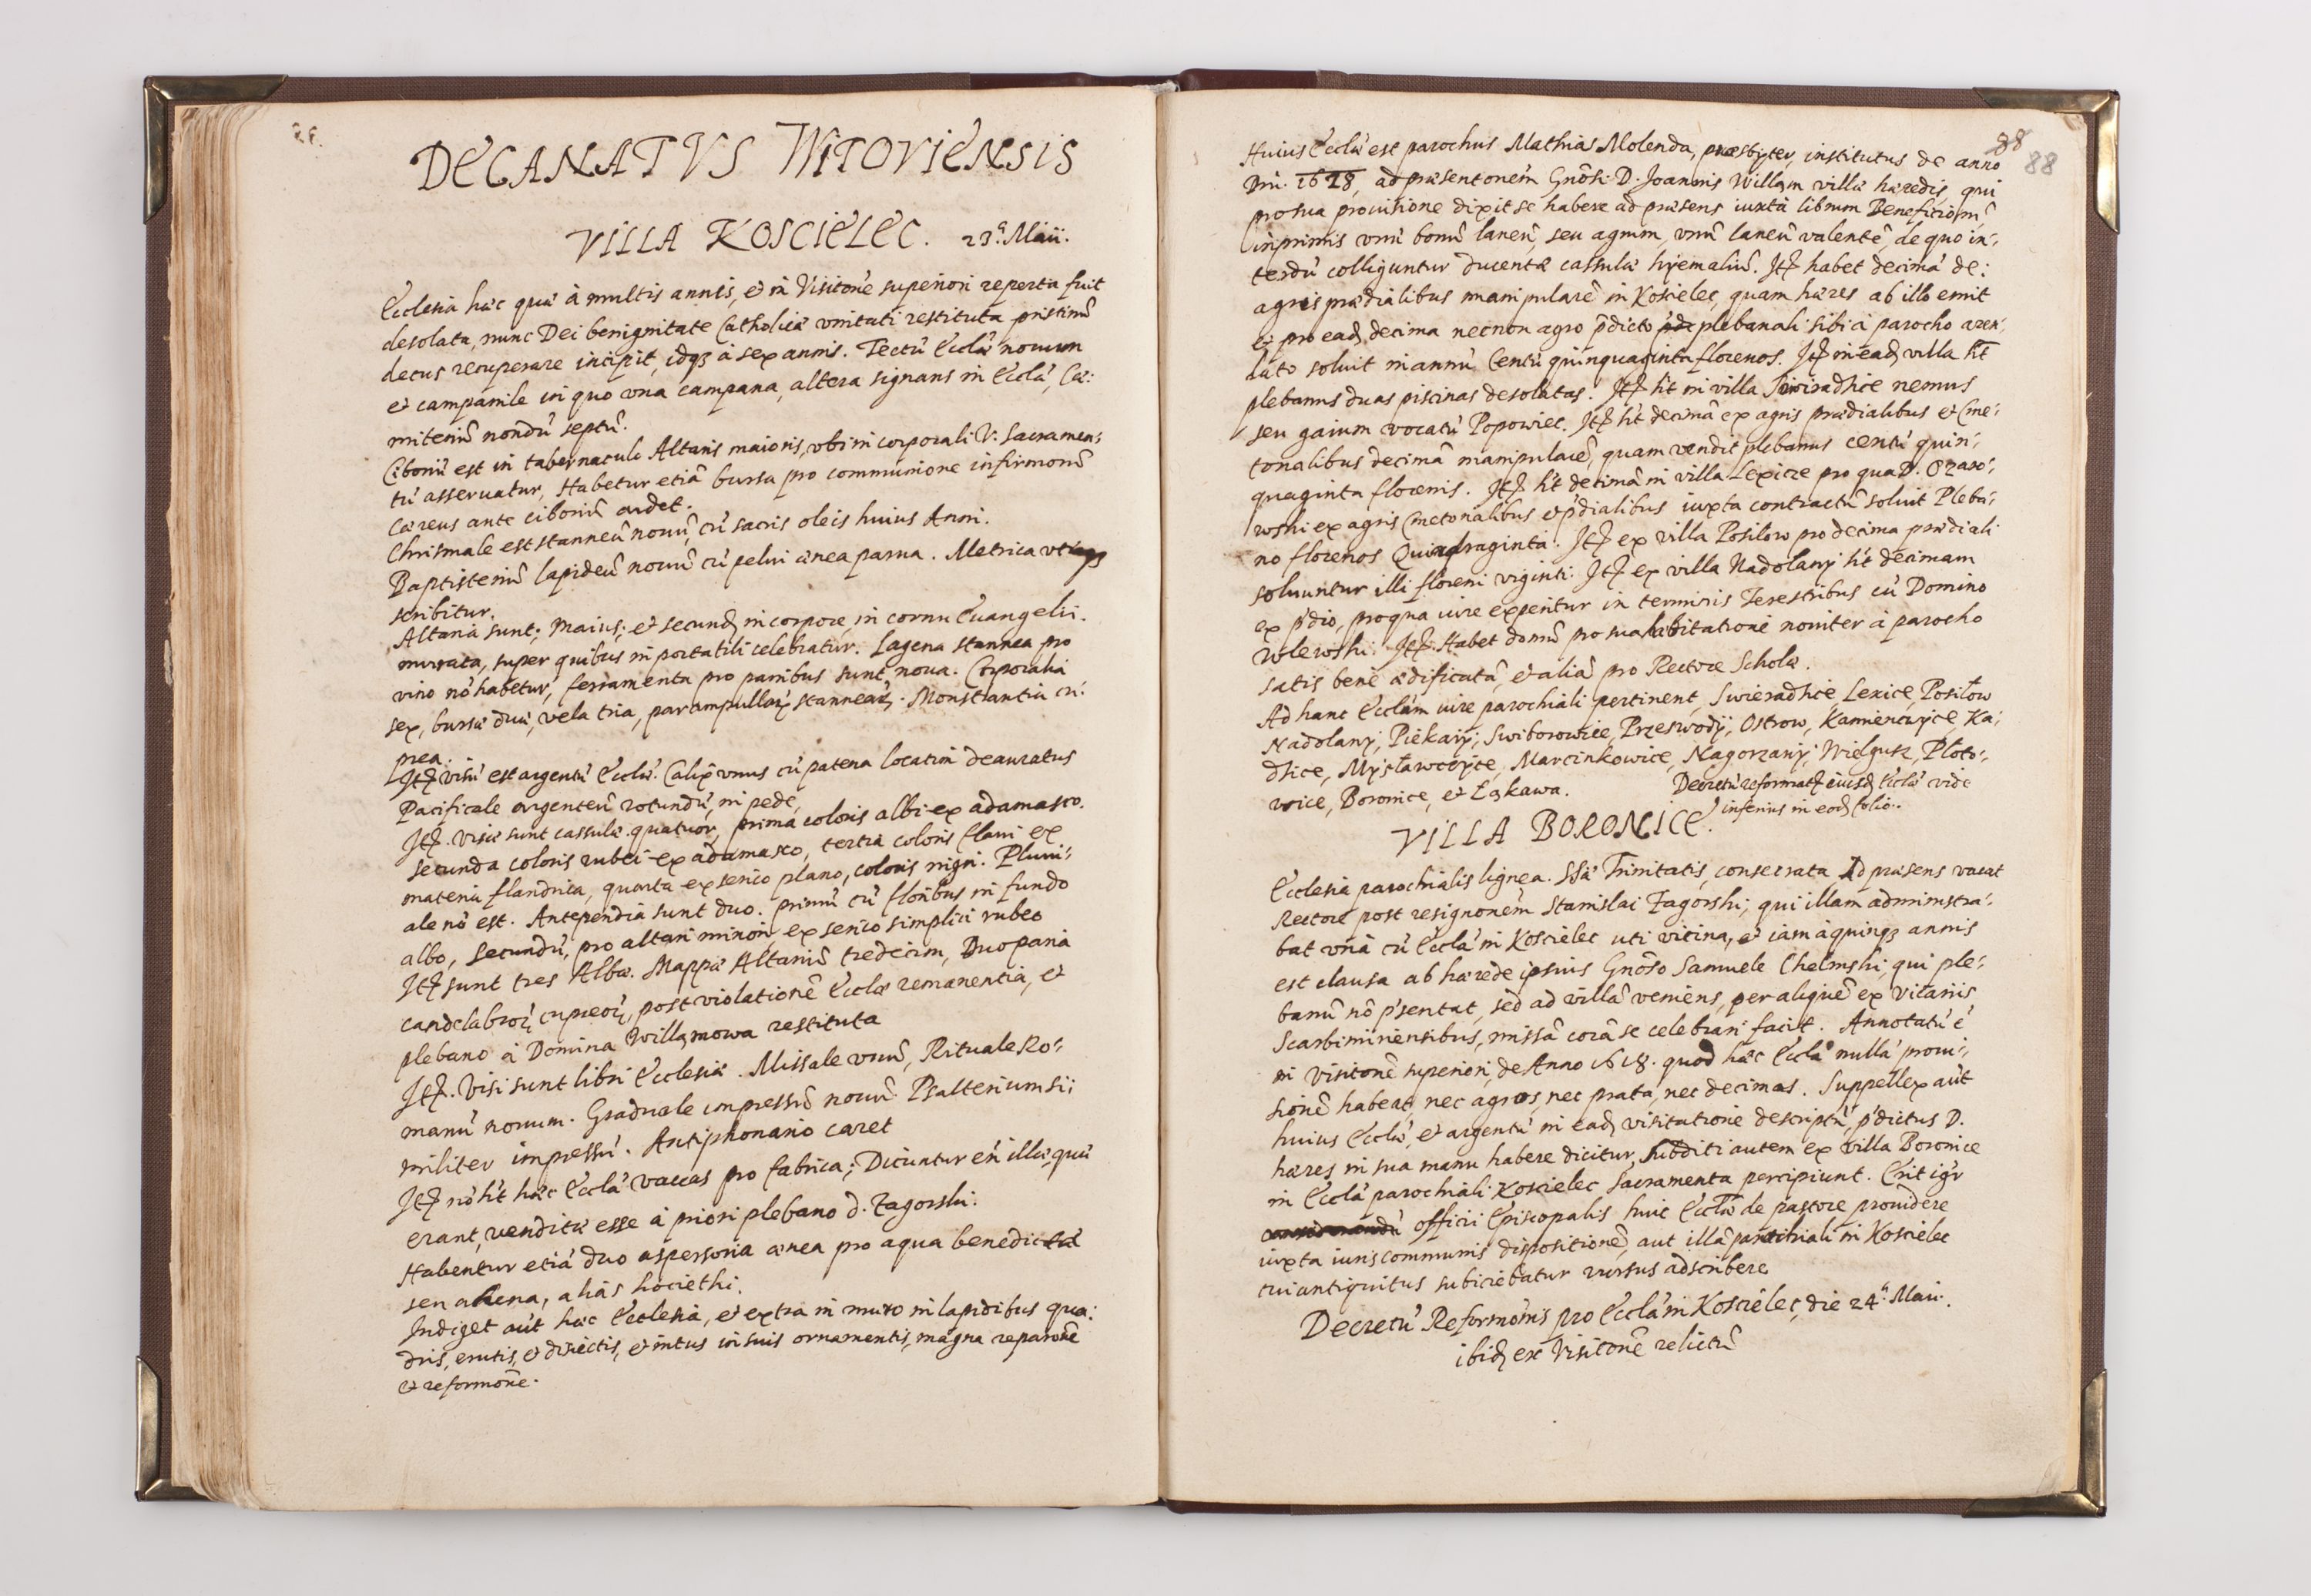 DECANATVS WITOVIENSIS
VILLA KOSCIELEC. 23ª Maii.
Ecclesia hæc quæ à multis annis, et in Visitone superiori reperta fuit
desolata, nunc Dei benignitate Catholicæ vnitati restituta pristinũ
decus recuperare incipit, idqꝫ à sex annis. Tectũ Ecclæ nouum
et campanile in quo vna campana, altera signans in Ecclã, Cæ:
miteriũ nondũ septũ.
Ciboriũ est in tabernaculo Altaris maioris, vbi in corporali V: Sacramen:
tũ asseruatur, Habetur etiã bursa pro communione infirmorũ
Cereus ante ciboriũ ardet.
Chrismale est stanneũ nouũ, cũ sacris oleis huius Anni.
Baptisteriũ lapideũ nouũ cũ pelui ænea parua. Metrica vtraqꝫ
scribitur.
Altaria sunt; Maius; et secundũ in corpore, in cornu Euangelii.
murata, super quibus in portatili celebratur. Lagena stannea pro
vino nõ habetur, ferramenta pro panibus sunt noua. Corporalia
sex, bursæ duæ, vela tria, par ampullarũ stannearũ. Monstrantia cu:
prea.
Itẽ visũ est argentũ Ecclæ. Calix vnus cũ patena locatim deauratus
Pacificale argenteũ rotundũ, in pede,
Itẽ. Visæ sunt cassulæ quatuor, prima coloris albi ex adamasco.
secunda coloris rubei ex adamasco, tertia coloris flaui ex
materia flandrica, quarta ex serico plano, coloris nigri. Pluui:
ale nõ est. Antependia sunt duo. primũ cũ floribus in fundo
albo, Secundũ, pro altari minori, ex serico simplici rubeo
Itẽ sunt tres Albæ. Mappæ Altariũ tredecim, Duo paria
candelabrorũ cupreorũ, post violationẽ Ecclæ remanentia, et
plebano à Domina Willamowa restituta
Itẽ. Visi sunt libri Ecclesiæ. Missale vnũ, Rituale Ro:
manũ nouum. Graduale impressũ nouũ. Psalterium si:
militer impressũ. Antiphonario caret
Itẽ nõ hẽt hæc Ecclã vaccas pro fabrica; Dicuntur eñ illæ, quæ
erant, venditæ esse à priori plebano d. Zagorski.
Habentur etiã duo aspersoria ænea pro aqua benedicta
seu ahena, alias kociethi.
Indiget aũt hæc Ecclesia, et extra in muro in lapidibus qua:
dris, erutis, et dirictis, et intus in suis ornamentis, magna reparõne
et reformõne.
88
88
Huius Ecclæ est parochus Mathias Molenda, præsbyter, institutus de anno
Dni. 1628, ad præsentonem Gnõsi D. Joannis Willam villæ hæredis, qui
pro sua prouisione dixit se habere ad præsens iuxta librum Beneficiorũ
inprimis vnũ bonũ laneũ, seu agrum, vnũ laneũ valentẽ, de quo in:
terdũ colliguntur ducentæ cassulæ hyemaliũ. Itẽ habet decimã de:
agris prædialibus manipularẽ in Koscielec, quam hæres ab illo emit
et pro eadẽ decima necnon agro p̃dicto plebanali sibi à parocho aren:
dato soluit in annũ Centũ quinquaginta florenos. Itẽ in eadẽ villa hẽt
plebanus duas piscinas desolatas. Itẽ hẽt in villa Swiradzice nemus
seu gaium vocatũ Popowiec. Itẽ hẽt decimã ex agris prædialibus et Cme:
tonalibus decimã manipularẽ, quam vendit plebanus centũ quin:
quaginta florenis. Itẽ hẽt decimã in villa Lexicze pro qua D. Ozaro:
wski ex agris Cmetonalibus et p̃dialibus iuxta contractũ soluit Pleba:
no florenos Quadraginta. Itẽ ex villa Posilow pro decima prædiali
soluuntur illi floreni viginti. Itẽ ex villa Nadolany hẽt decimam
ex p̃dio, pro qua iure experitur in terminis Terestribus cũ Domino
Wlewski. Itẽ. Habet domũ pro sua habitatione nouiter à parocho
satis bene ædificatã, et aliã pro Rectore Scholæ.
Ad hanc Ecclam iure parochiali pertinent, Swieradzice, Lexice, Posiłow
Nadolany, Piekary, Swiborowice, Przeswody, Ostrow, Kamienczyce, Ka:
dzice, Mysławczyce, Marcinkowice, Nagorzany, Wielgusz, Płoto:
wice, Boronice, et Łękawa.
Decretũ reformatõis eiusdẽ Ecclæ vide
inferius in eodẽ folio.
VILLA BORONICE.
Ecclesia parochialis lignea. SSæ Trinitatis, consecrata Ad præsens vacat
Rectore post resignonem Stanislai Zagorski, qui illam administra:
bat vnã cũ Ecclã in Koscielec uti vicina, et iam à quinqꝫ annis
est clausa ab hærede ipsius Gnõso Samuele Chelmski, qui ple:
banũ nõ p̃sentat, sed ad villã veniens, per aliquẽ ex Vicariis
Scarbimiriensibus, missã corã se celebrari facit. Annotatũ ẽ
in Visitonẽ superiori, de Anno 1618. quod hæc Ecclã nullã proui:
sionẽ habeat, nec agros, nec prata, nec decimas. Suppellex aũt
huius Ecclæ, et argentũ in eadẽ visitatione descriptũ, p̃dictus D.
hæres in sua manu habere dicitur, subditi autem ex villa Boronice
in Ecclã parochiali Koscielec Sacramenta percipiunt. Erit igr
officii Episcopalis huic Ecclæ de pastore prouidere
iuxta iuris communis dispositionẽ, aut illã parochiali in Koscielec
cui antiquitus subiciebatur rursus adscribere
Decretũ Reformõnis pro Ecclã in Koscielec, die 24ª Maii.
ibidẽ ex Visitonẽ relictũ